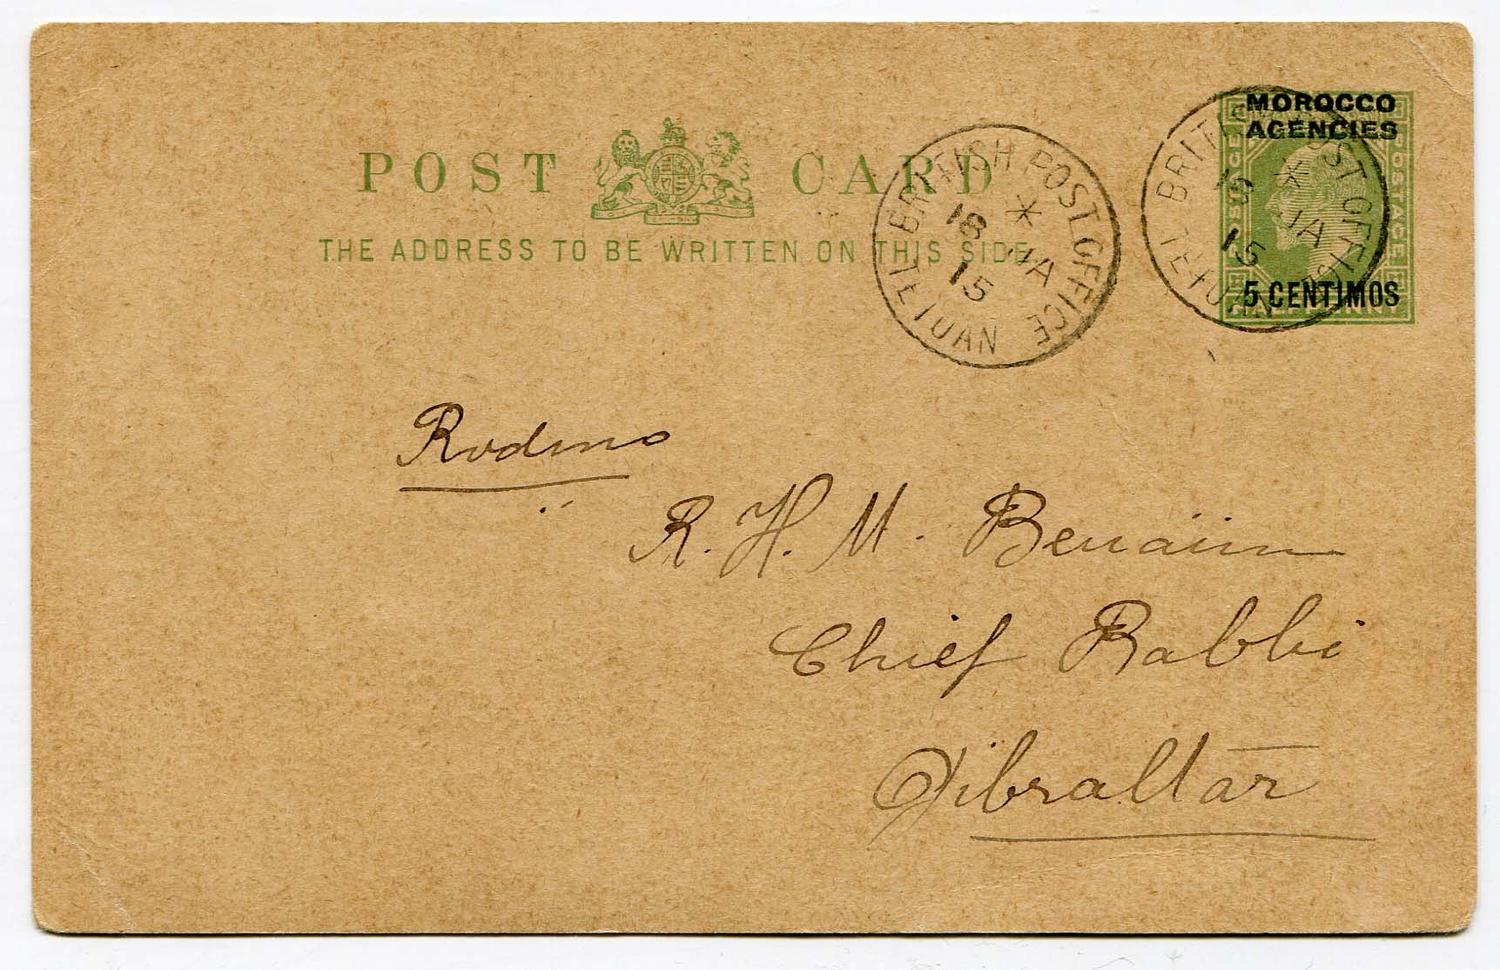 MOROCCO
AGENCIES
POST CARD
THE ADDRESS TO BE WRITTEN ON THIS SIDE
BRITISH POST OFFICE
18 JA
15
TETUAN
BRITISH POST OFFICE
18 JA
15
TETUAN
POSTAGE
POSTAGE
5 CENTIMOS
HALFPENNY
R. H. M. Benaim
Chief Rabbi
Gibraltar